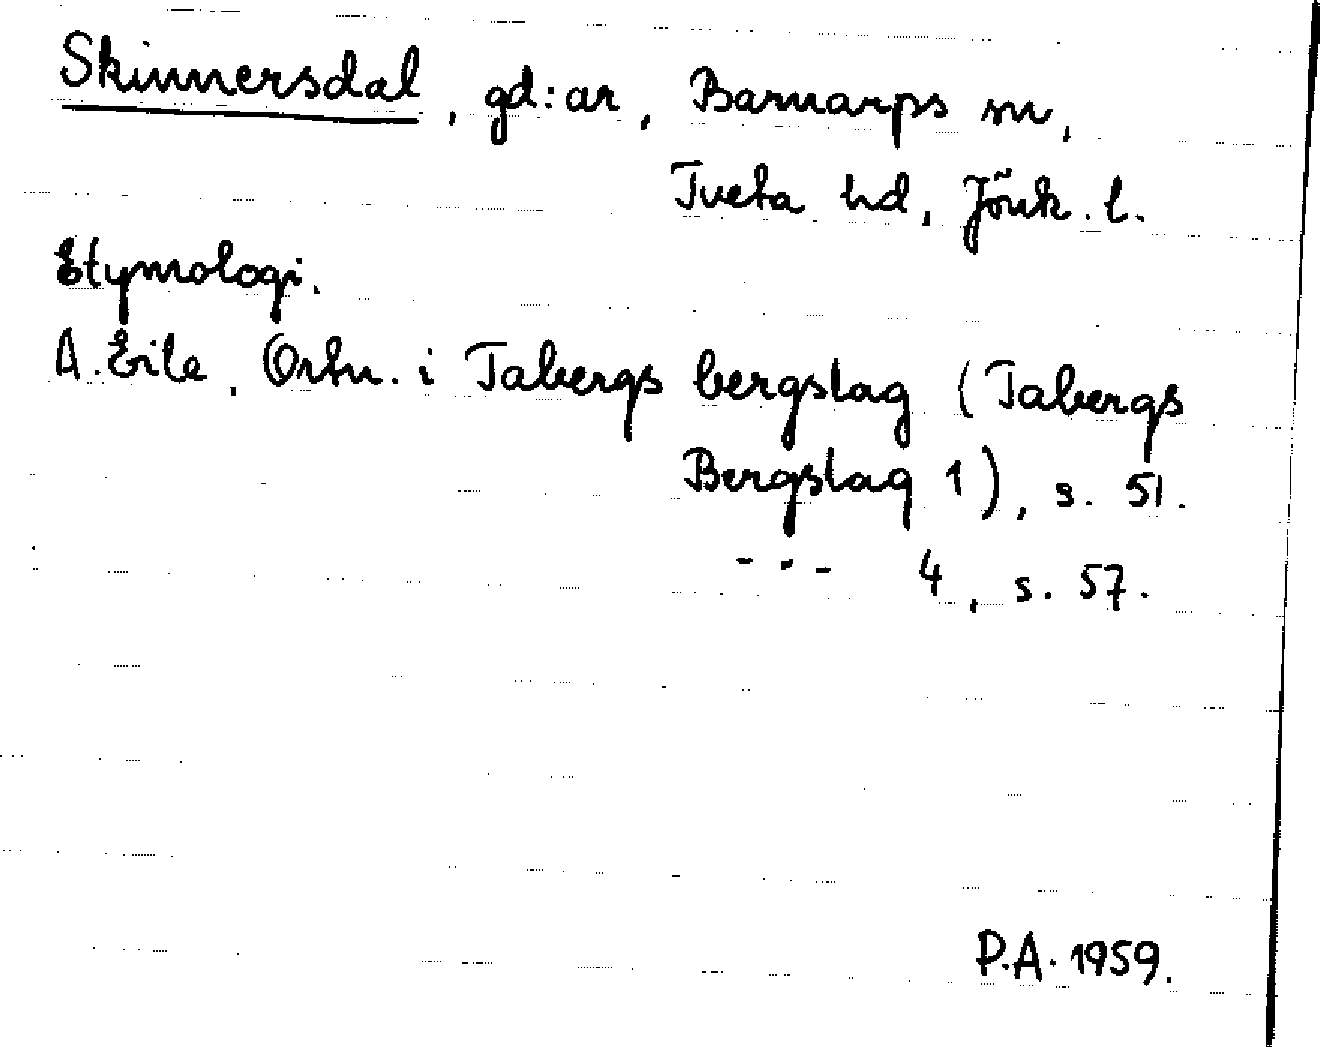 Skinnersdal, gd:ar, Barnarps sn,
Tveta hd, Jönk. l.
Etymologi.
A. Eile, Ortn. i Tabergs bergslag (Tabergs
Bergslag 1), s. 51.
- - - 4, s. 57.
P.A. 1959.